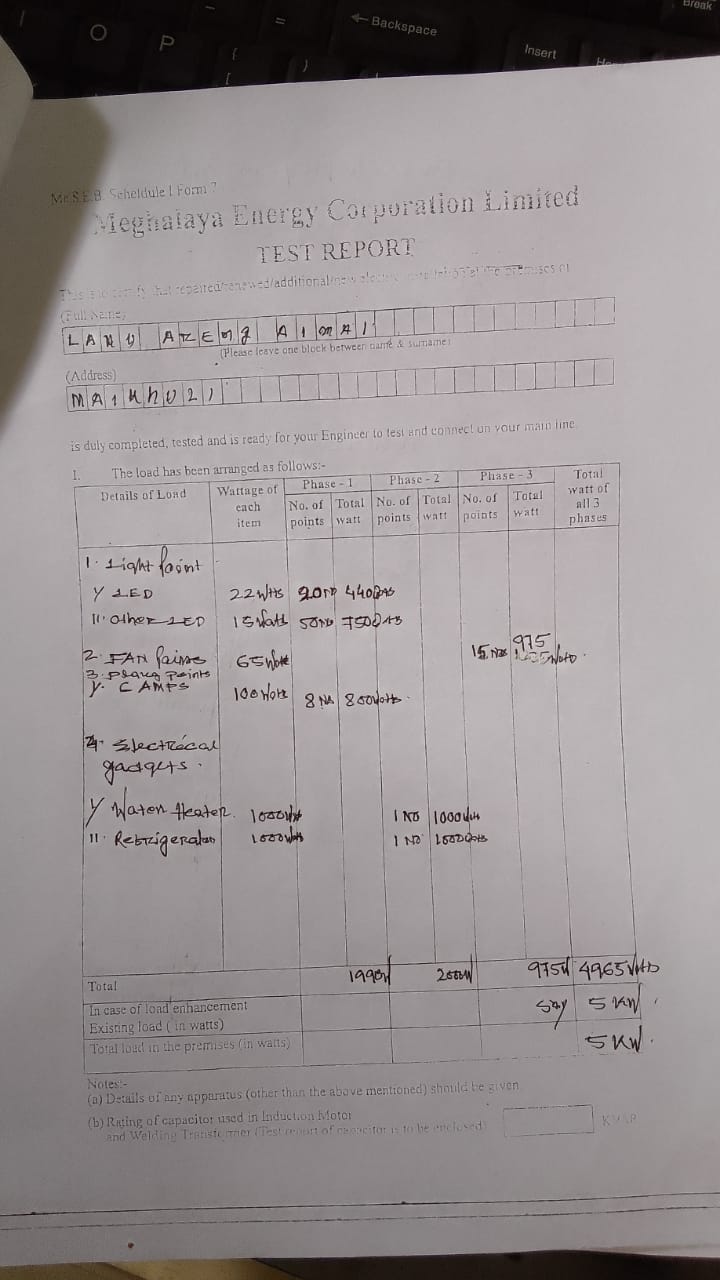 Break
O
P
{
[
=
}
← Backspace
Insert
Me.S.E.B. Scheldule I Form 7
Meghalaya Energy Corporation Limited
TEST REPORT
This is to certify that repaired/renewed/additional/new electric installation at the premises of
(Full Name)
LANU AZEng AIMAI
(Please leave one block between name & surname)
(Address)
is duly completed, tested and is ready for your Engineer to test and connect on your main line.
1. The load has been arranged as follows:-
Details of Load Wattage of each item Phase - 1 Phase - 2 Phase - 3 Total watt of all 3 phases
No. of points Total watt No. of points Total watt No. of points Total watt
1. Light Point
LED 22 Watts 20 No 440
II. Other LED 15 Watts 50 No 750
2. FAN Points 65 Watt 15 Nos 975
3. Points
AMPS 100 Watt 8 No 800 Watts
4. Electrical
gadgets.
Water Heater 1000 Watt 1 No 1000 Watt
II. Refrigerator 1000 Watt 1 No 1000 Watts
Total 1990W 2000W 975W 4965 Watts
In case of load enhancement
Existing load (in watts) Say 5 KW.
Total load in the premises (in watts) 5 KW.
Notes:-
(a) Details of any apparatus (other than the above mentioned) should be given
(b) Rating of capacitor used in Induction Motor
and Welding Transformer (Test report of capacitor is to be enclosed) KVAR